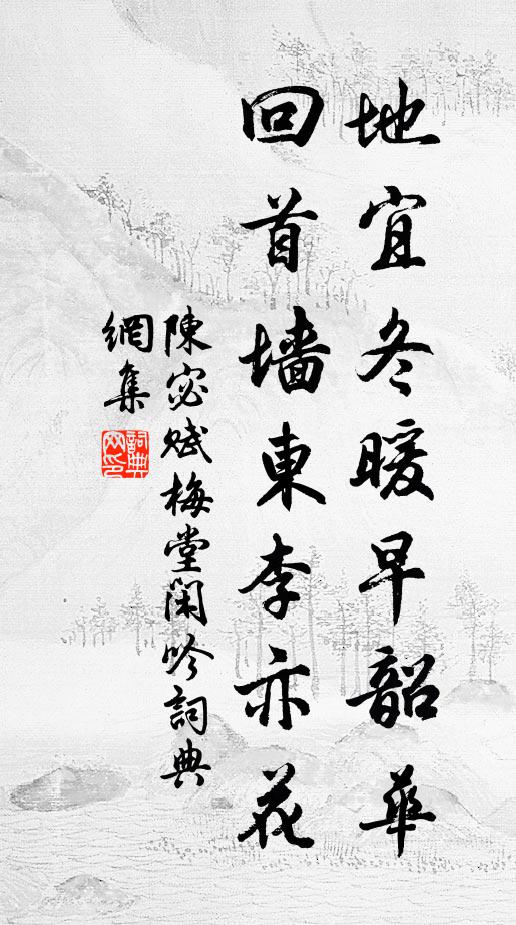 地宜冬暖早韶華
回首墻東李亦花
陳宓賦梅堂閑吟詞典
網集
詞典網印